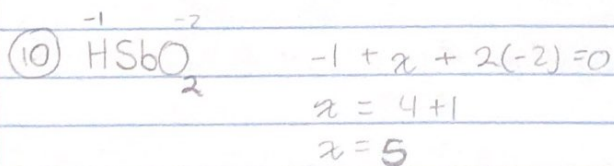 -1 -2
⑩ HSbO₂ -1 + x + 2(-2) = 0
x = 4 + 1
x = 5